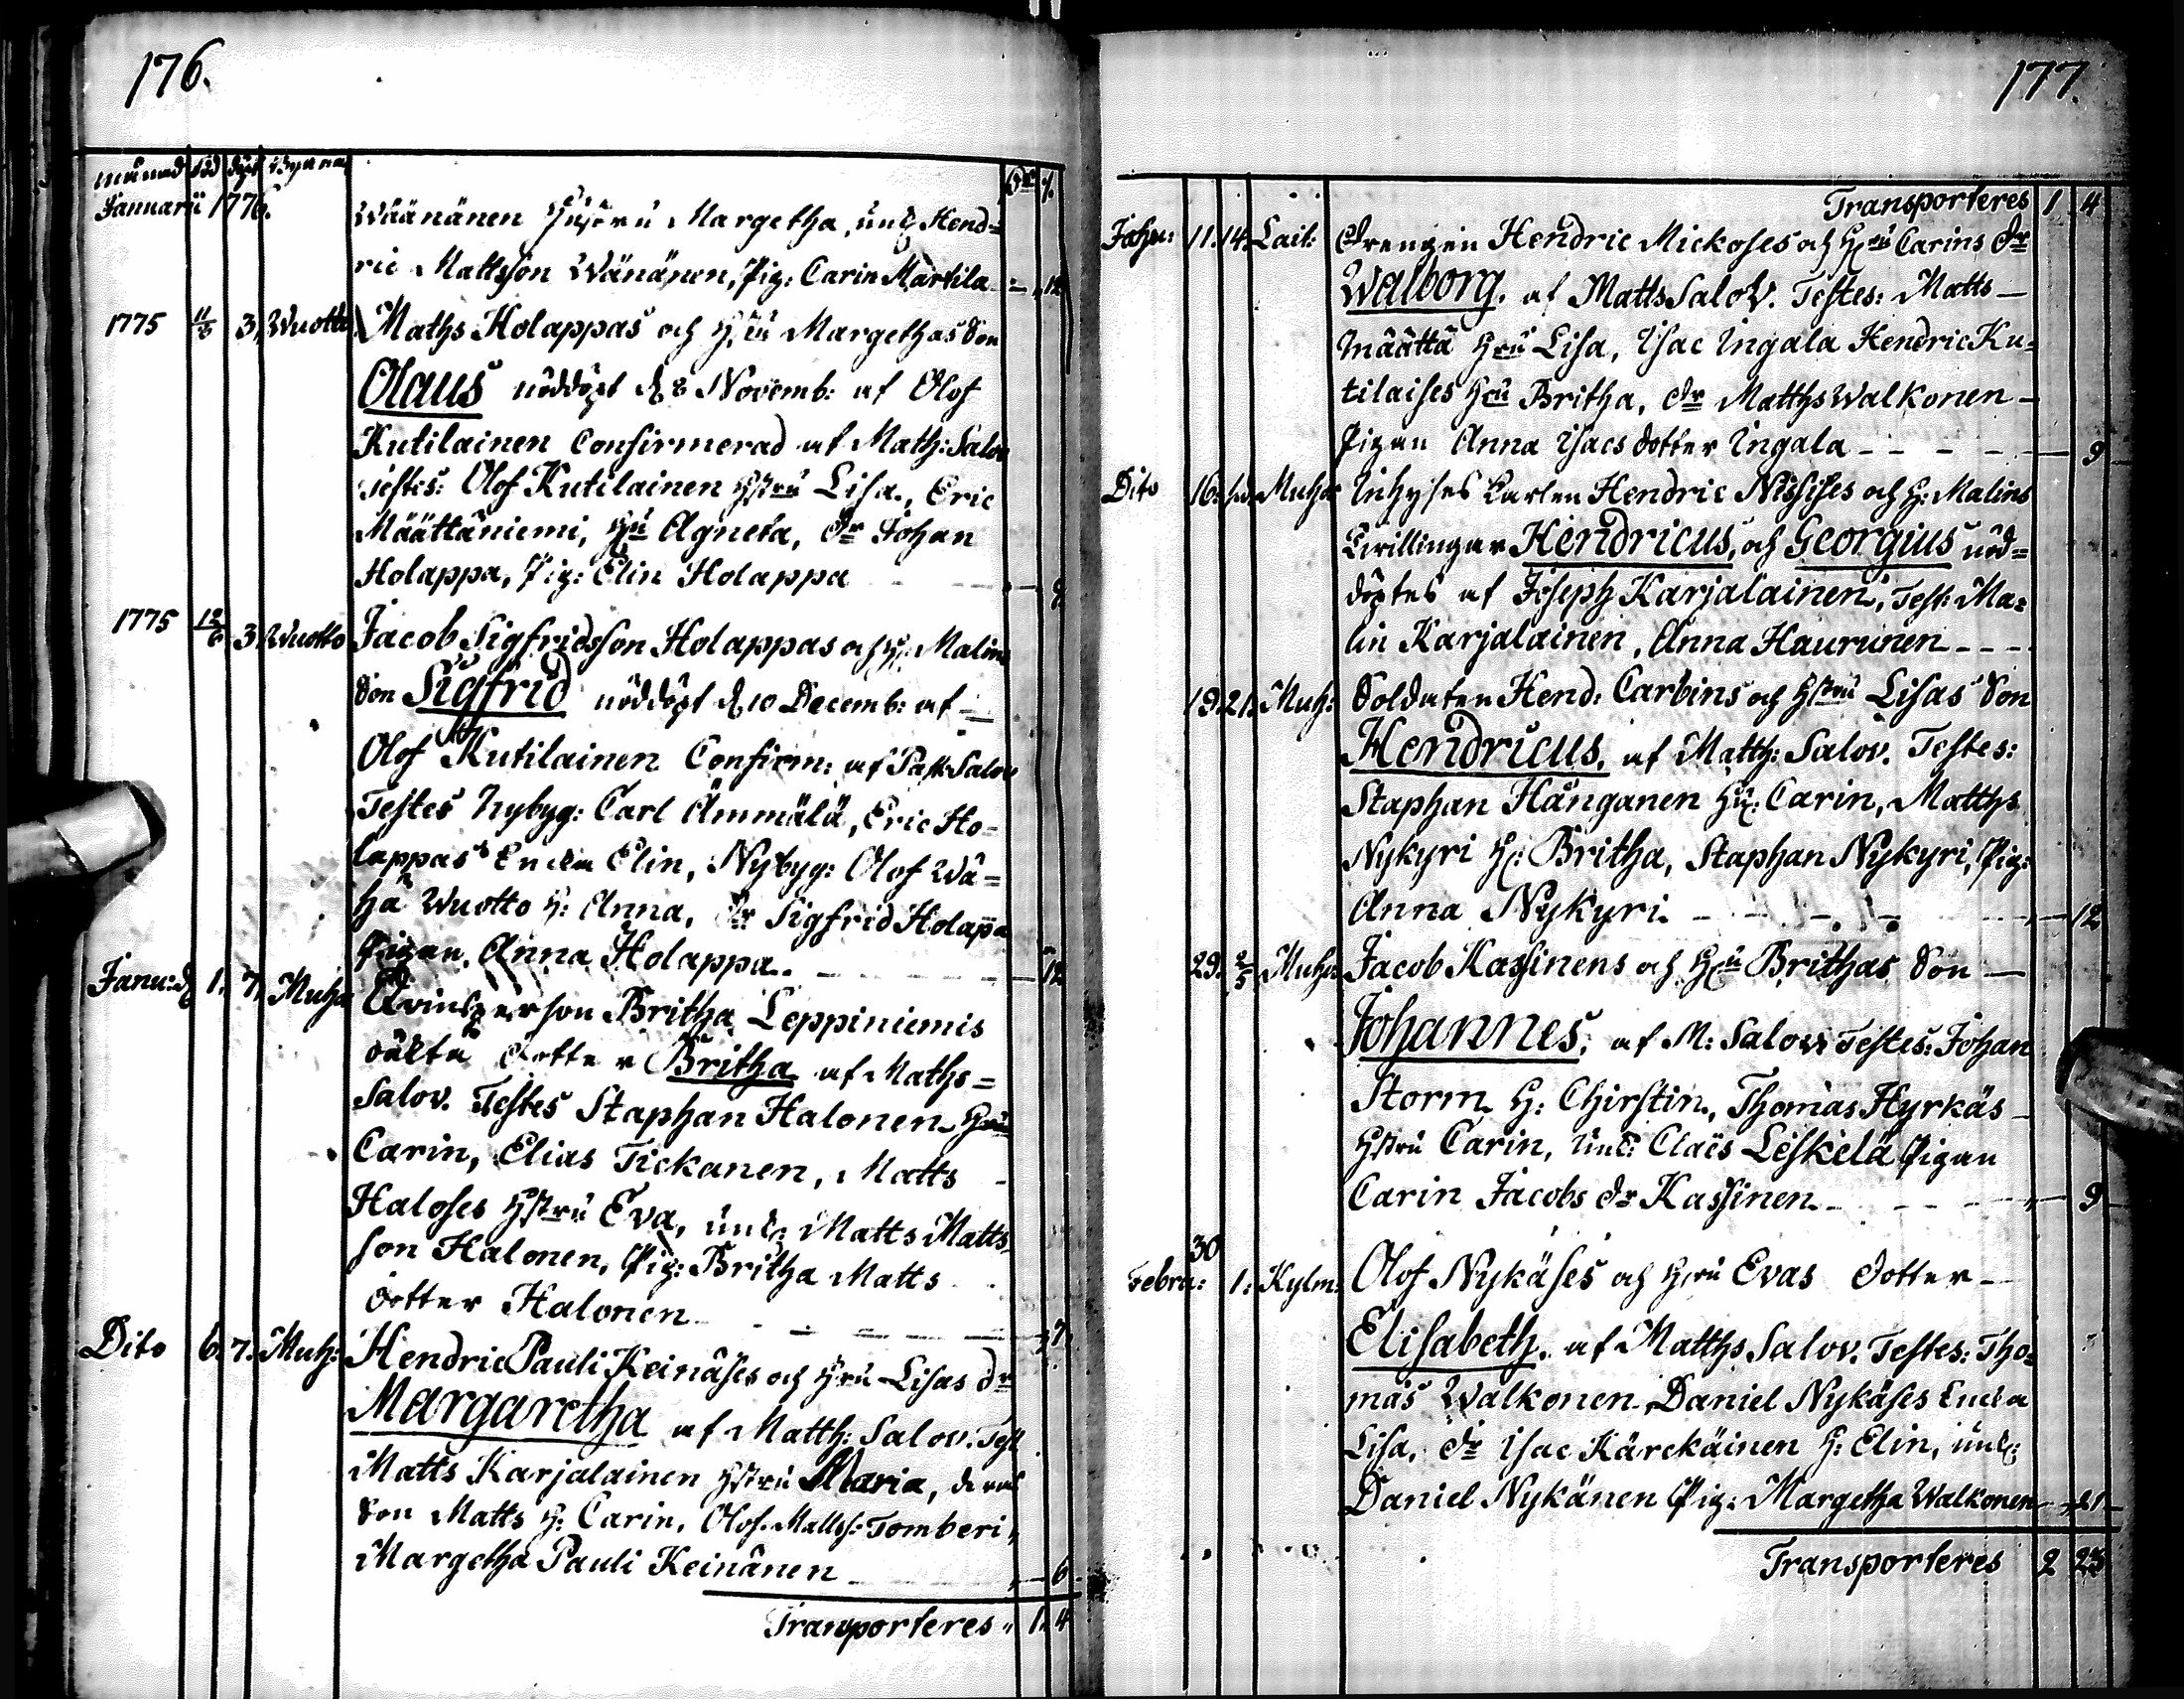 176.
månad föd döpt Byarna
Januarii 1776. Wäänänen Hustru Margetha, ung Hend=
ric Mattsson Wänänen, Pig: Carin Martila 12
1775 11/6 3, Wuotto Maths Holappas och H:ru Margethas Son
Olaus nöddöpt d 8 Novemb: af Olof
Kutilainen Confirmerad af Math: Salov
Testes: Olof Kutilainen Hstru Lisa, Eric
Määttäniemi, Hu Agneta, dr Johan
Holappa, Pig: Elin Holappa 9
1775 12/6 3 Wuotto Jacob Sigfridsson Holappas och H: Malins
Son Sigfrid nöddöpt d 10 Decemb: af
Olof Kutilainen Confirm: af Past: Salov
Testes Nybyg: Carl Ämmälä, Eric Ho=
lappas Encka Elin, Nybyg: Olof Wä=
hä Wuotto H: Anna, dr Sigfrid Holapa
Pigan Anna Holappa. 12
Janu: d 1. 7. Muhos Qvinsperson Britha Leppiniemis
oäkta dotter Britha af Maths=
Salov. Testes Staphan Halonen Hru
Carin, Elias Tickanen, Matts
Haloses Hstru Eva, und: Matts Matts
son Halonen, Pig: Britha Matts
dotter Halonen 7.
Dito 6. 7. Muh: Hendric Pauli Keinäses och Hru Lisas dr
Margaretha af Matth: Salov. Test
Matts Karjalainen Hstru Maria, deras
Son Matts H: Carin, Olof Mattss: Tomberi,
Margetha Pauli Keinänen 6
Transporteres 1. 4
177.
Transporteres 1 4
Jahn: 11. 14. Lait: Drengen Hendric Mickoses och Hru Carins dr
Walborg. af Matts Salov. Testes: Matts
Määttä Hru Lisa, Isac Ingala Hendric Ku=
tilaises Hru Britha, dr Matths Walkonen
Pigan Anna Isacs dotter Ingala 9
Dito 16. Muhos Inhyses Karlen Hendric Nissises och H: Malins
Twillingar Hendricus, och Georgius nöd=
döptes af Joseph Karjalainen, Test: Ma=
lin Karjalainen, Anna Haurunen
19. 21. Muh: Soldaten Hend: Carbins och Hstru Lisas Son
Hendricus. af Matth: Salov. Testes:
Staphan Hånganen Hu: Carin, Matths
Nykyri H: Britha, Staphan Nykyri, Pig:
Anna Nykyri. 12
29. 2/3 Muhos Jacob Kassinens och Hru Brithas Son
Johannes. af M: Salov Testes: Johan
Storm H: Chirstin, Thomas Hyrkäs
Hstru Carin, und: Claës Leskelä Pigan
Carin Jacobs dr Kassinen 9
30
Febru: 1: Kylm: Olof Nykäses och Hru Evas dotter
Elisabeth. af Matths Salov. Testes: Tho=
mas Walkonen, Daniel Nykäses Encka
Lisa, dr Isac Kärckäinen H: Elin, und:
Daniel Nykänen Pig: Margetha Walkonen 21
Transporteres 2 23